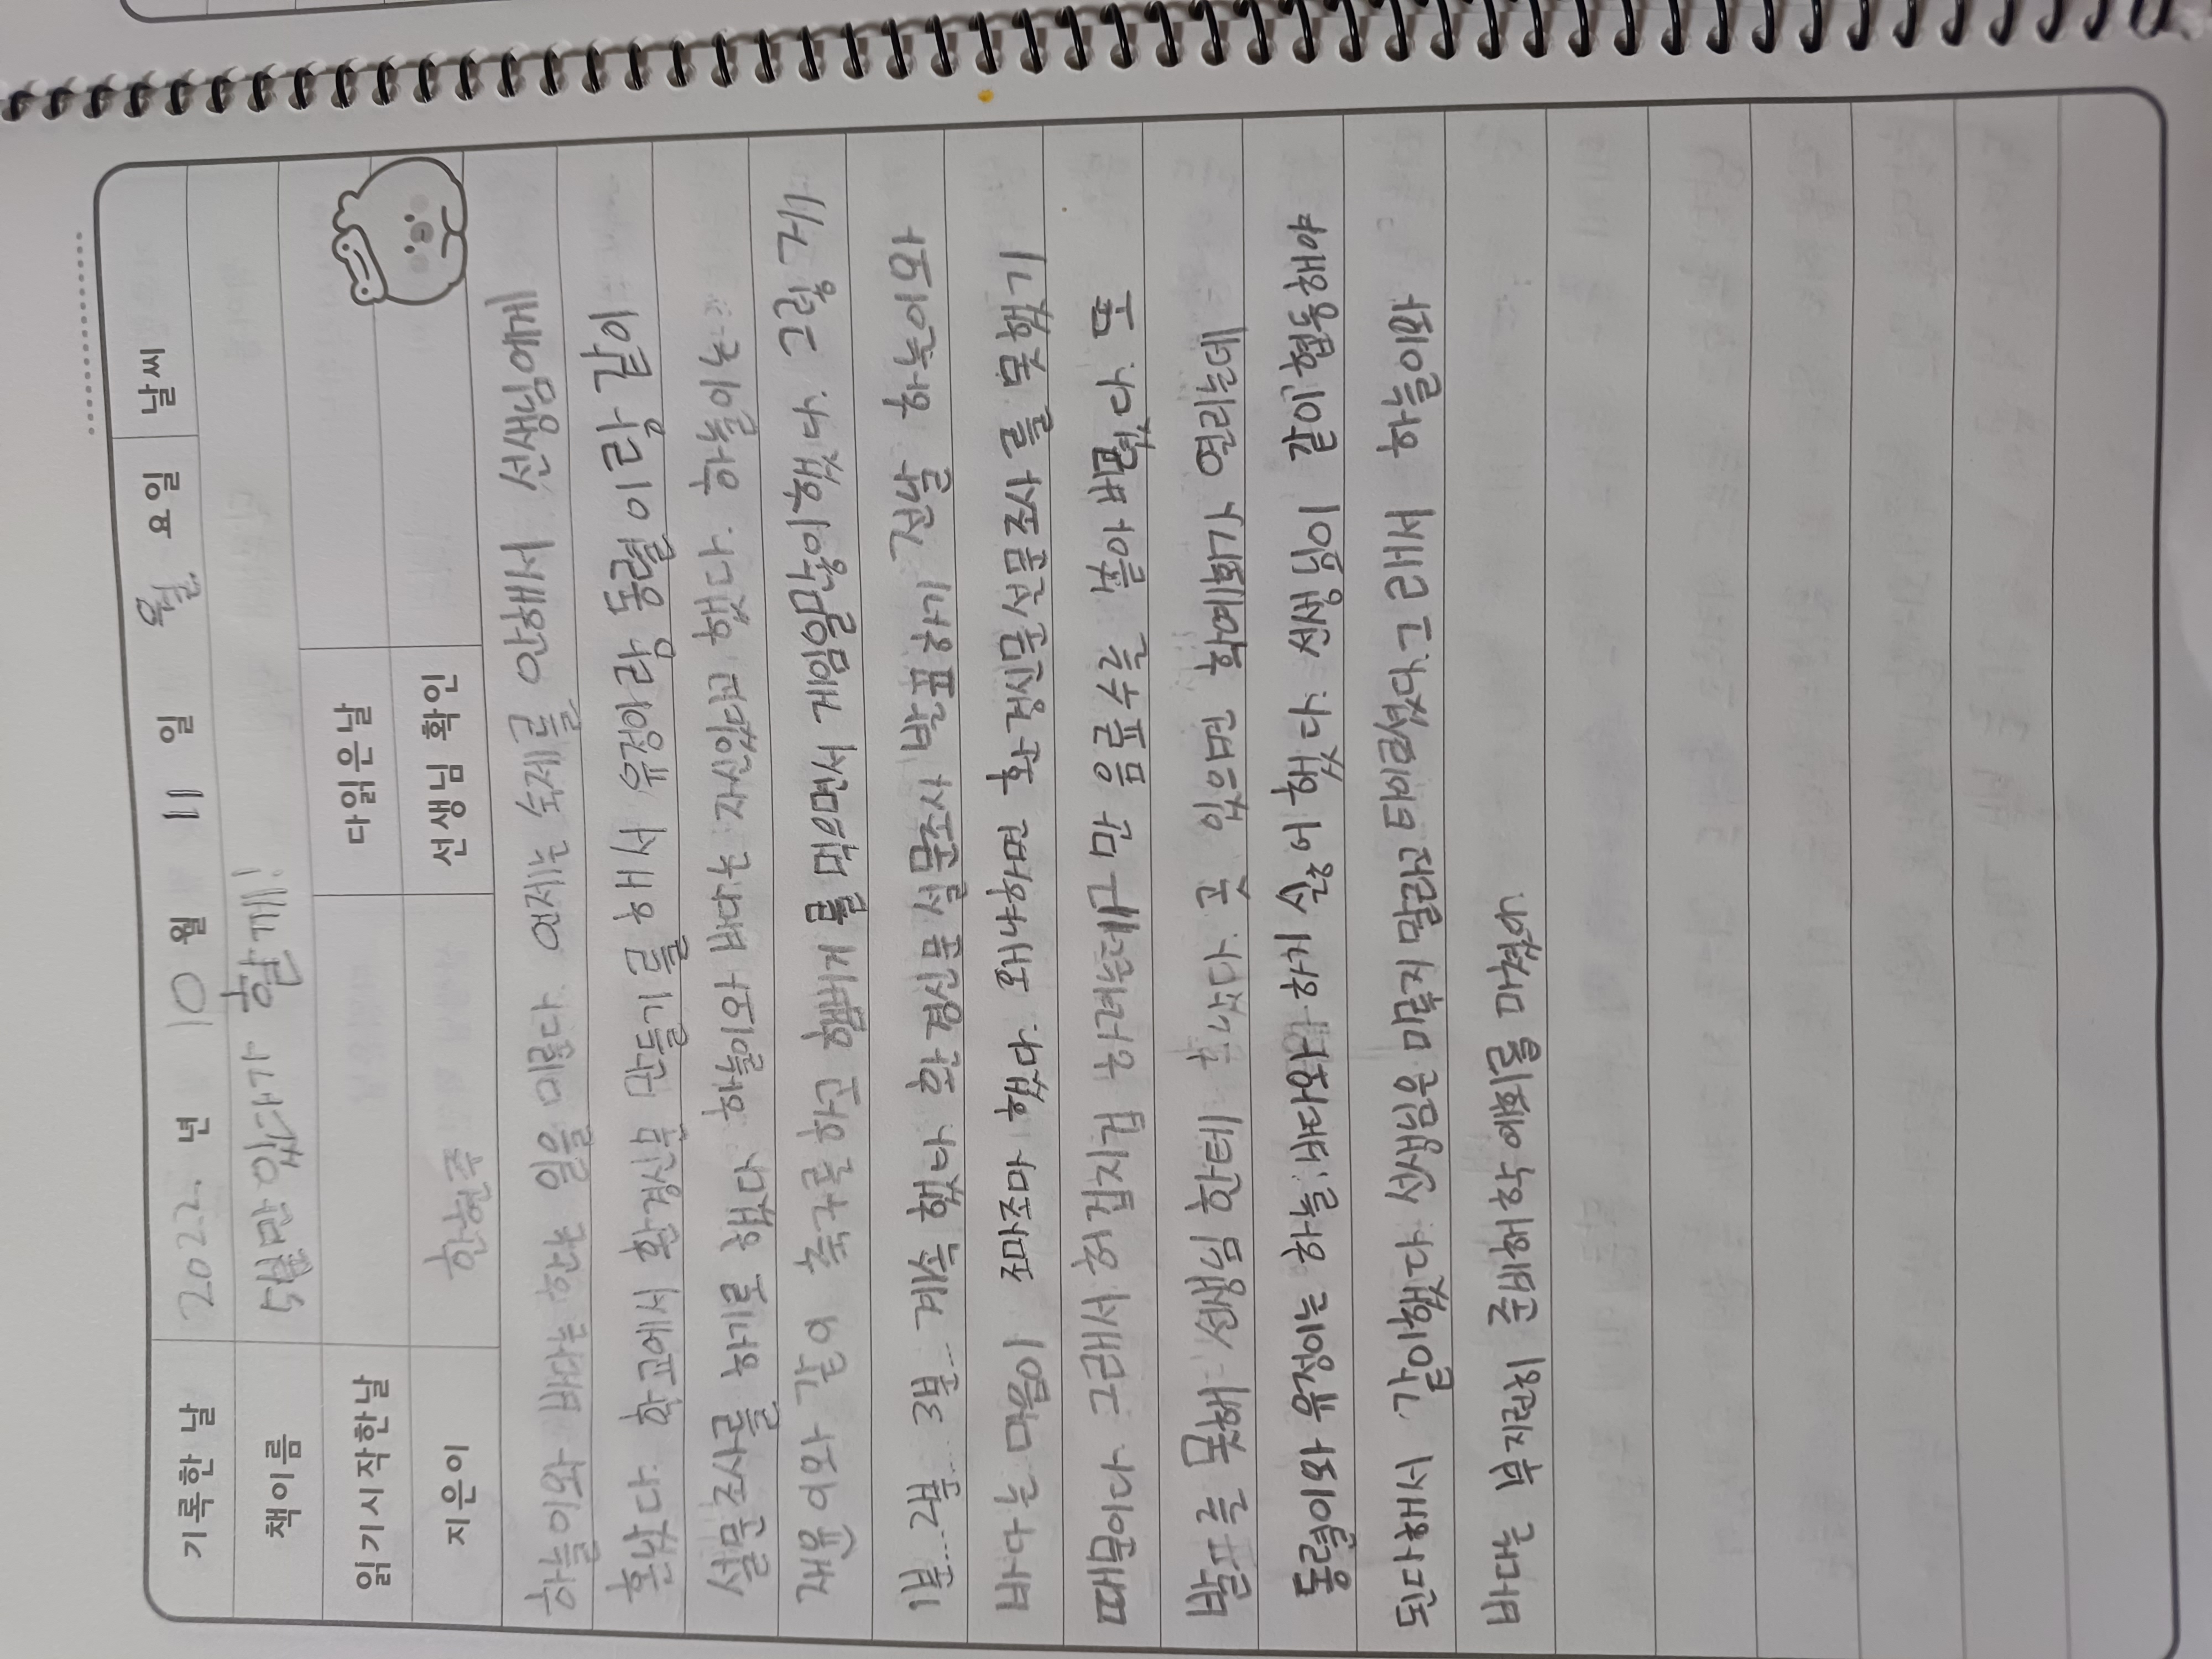 기록한 날 2022. 년 10 월 11 일 월 요일 날씨
책이름 5분만 있다가 할께!
읽기시작한날 다읽은날
지은이 한현주 선생님 확인
하늘이와 바다는 한는 일을 미룬다. 언제는 숙제를 안해서 선생님에게
혼났다. 학교에서 환경신문 만들기를 해서 유정이랑 동렬이랑 같이
설문조사를 하기로 했다 하늘이와 바다는 자신있다고 했다. 하늘이는
재윤이와 같이 축구를 하고 햄버거를 먹으면서 게임을많이했다. 그렇게
1분... 2분... 3분... 계속 했다. 환경신문 설문조사 발표하기 전날 하늘이와
바다는 마음이 조마조마 했다. 왜냐하면 환경신문설문조사를 못했기
때문이다. 그래서 허겁지겁 하려는데 그만 음료수를 쏟아 버렸다. 또
발표를 못해 선생님한테 혼났다. 곳 있으면 학예회가 열리는데
동렬이와 유정이는 하늘, 바다와 하기 싫어 했다. 선생님이 같이 협동해야
된다해서 같이했다. 선생님은 미루지 말라고 타이르셨다. 그래서 하늘이와
바다는 부지런히 준비해 학예회를 마쳤다.